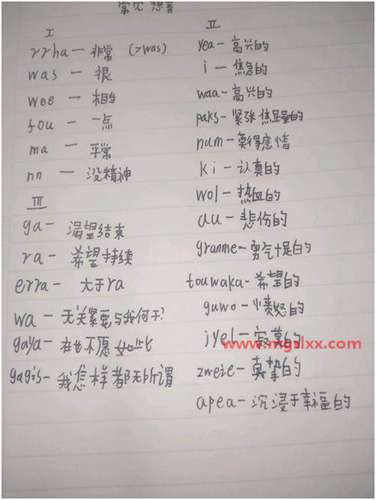 常见想音
I
rrha — 非常 (>was)
was — 很
wee — 相当
sou — 一点
ma — 平常
nn — 没精神
III
ga — 渴望结束
ra — 希望持续
erra — 大于ra
wa — 无关紧要与我何干?
gaya — 在也不愿如此
gagis — 我怎样都无所谓
II
yea — 高兴的
i — 焦急的
waa — 高兴的
paks — 紧张焦虑的
num — 莫得感情
ki — 认真的
wol — 热血的
au — 悲伤的
granme — 勇气十足的
touwaka — 希望的
guwo — 愤怒的
iyel — 寂寞的
zweie — 真挚的
apea — 沉浸于幸福的
www.mgslxx.com